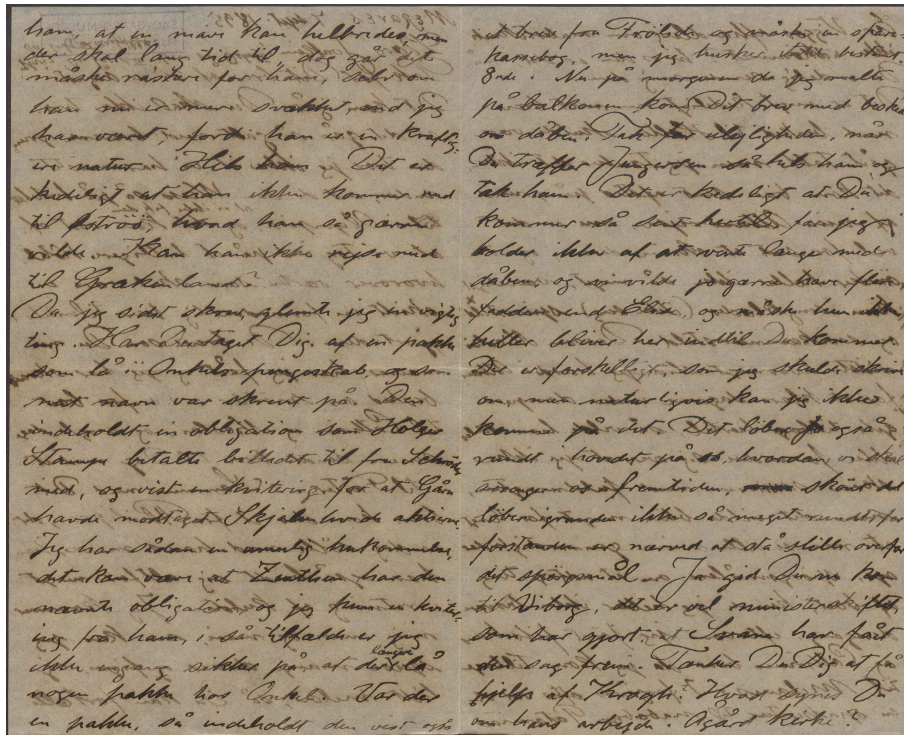 ham, at en mave kan helbredes, men
der skal lang tid til, dog går det
måske raskere for ham, selv om
han nu er mere svækket, end jeg
har været, fordi han er en kraftig-
ere natur. Hils ham. Det er
kedeligt at han ikke kommer ned
til hvad han så gærne
vilde. Kan han ikke rejse ned
til Grækenland?
Da jeg sidst skrev glemte jeg en vigtig
ting. Har Du taget Dig af en pakke
som lå i Onkels pengeskab, og som
mit navn var skrevet på. Den
indeholdt en obligation som Holger
Stampe betalte billedet til fru
med, og vist en kvitering for at
havde modtaget aktierne.
Jeg har sådan en hukommelse,
det kan være at Zeuthen har den
nævnte obligation og jeg kun en kviter-
ing fra ham, i så tilfælde er jeg
ikke engang sikker på at der længere lå
nogen pakke hos Onkel. Var der
en pakke, så indeholdt den vist også
et brev fra Frölich og måske en spare-
kassebog, men jeg husker ikke bestemt
Nu på morgenen da jeg malte
på balkonen kom Dit brev med besked
om dåben. Tak for ulejligheden, når
Du træffer Jungersen så hils ham og
tak ham. Det er kedeligt at Du
kommer så sent hertil, for jeg
holder ikke af at vente længe med
dåben, og vi vilde jo gærne have flere
faddere end Elise (og måske hun ikke
heller bliver her indtil Du kommer.
Der er forskelligt, som jeg skulde skrive
om, men naturligvis kan jeg ikke
komme på det. Det løber jo også
rundt i hovedet på os, hvordan vi skal
arrangere os i fremtiden, skönt det
löber igrunden ikke så meget rundt, for
forstanden er nærved at stå stille overfor
det spørgsmål. Ja gid Du nu kom
til Viborg, det er vel ministerskiftet,
som har gjort, at har fået
den sag frem. Tænker Du Dig at få
hjelp af Krogh? Hvad synes Du
om hans arbejde. Ågård kirke?